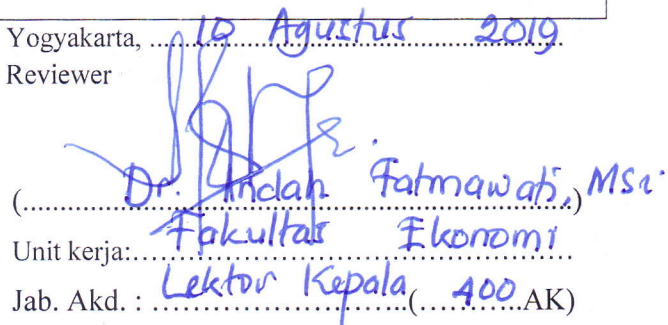 Yogyakarta, ...10 Agustus 2019
Reviewer
(...Dr. Indah Fatmawati, MSi...)
Unit kerja:...Fakultas Ekonomi
Jab. Akd. : Lektor Kepala (...400 AK)